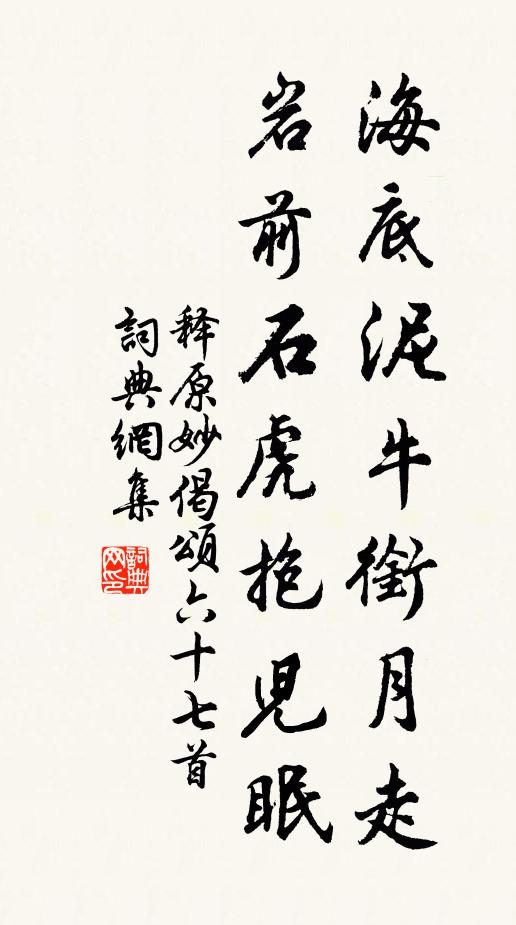 海底泥牛銜月走
岩前石虎抱児眠
释原妙偈頌六十七首
詞典網集
詞典网印